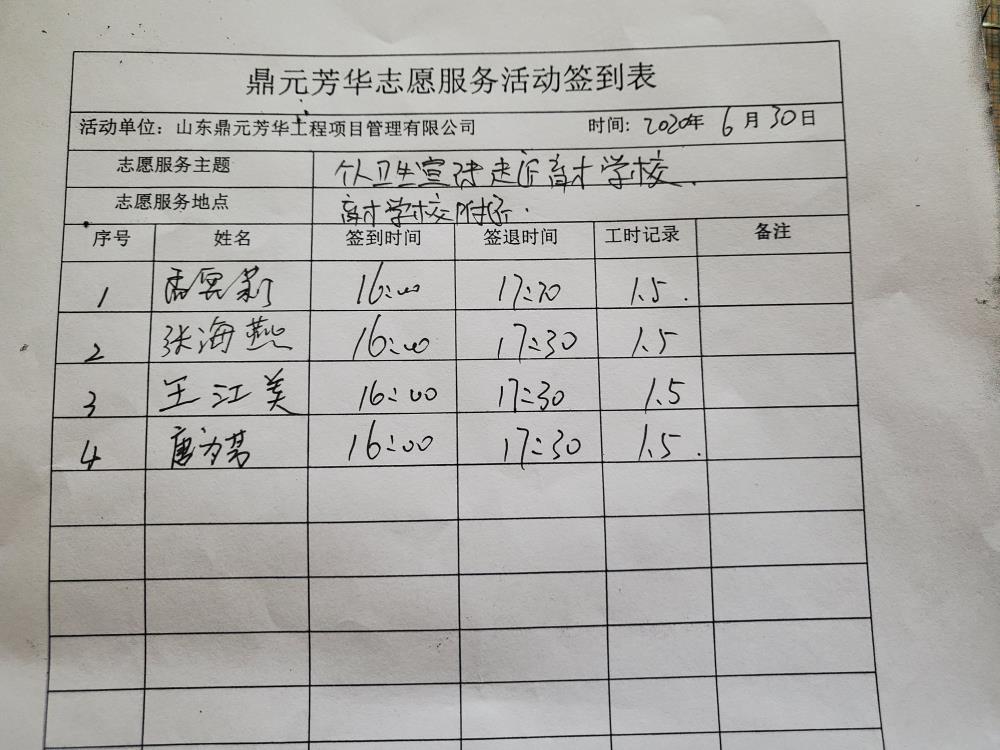 鼎元芳华志愿服务活动签到表
活动单位：山东鼎元芳华工程项目管理有限公司 时间：2020年 6月30日
志愿服务主题 个人卫生宣传走近育才学校.
志愿服务地点 育才学校附近.
序号 姓名 签到时间 签退时间 工时记录 备注
1 16:00 17:30 1.5.
2 张海燕 16:00 17:30 1.5
3 王江美 16:00 17:30 1.5
4 唐 16:00 17:30 1.5.